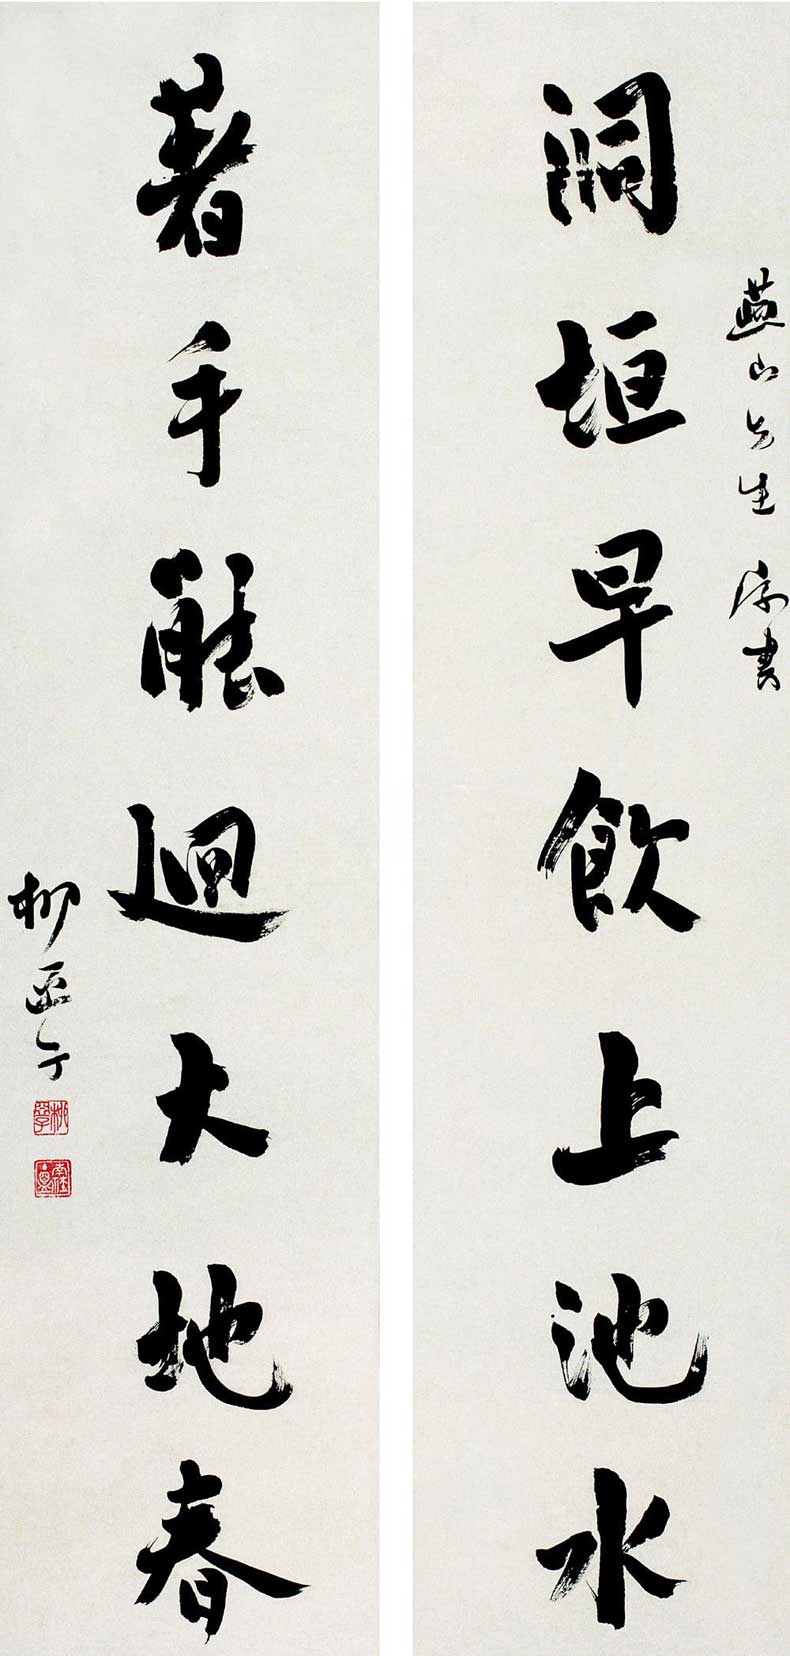 燕山先生
洞垣早飲上池水
著手能迴大地春
柳亞子